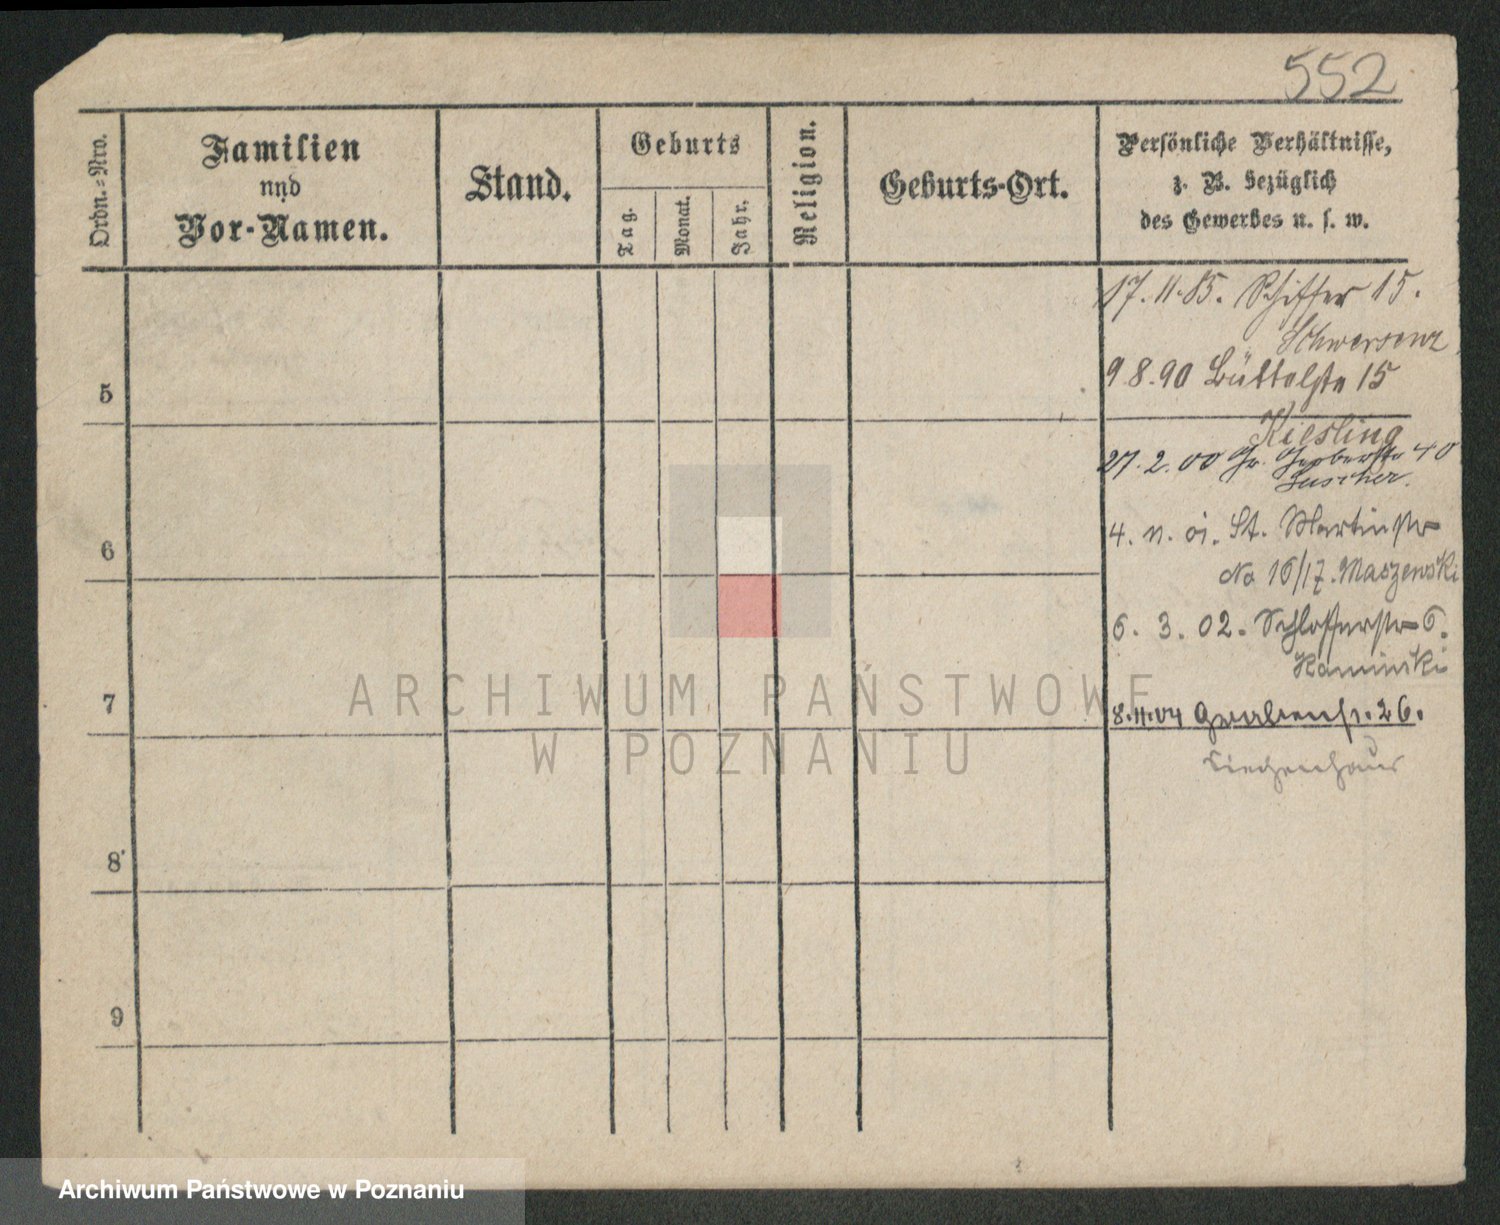 552
Ordn.-Nro.
Familien
und
Vor-Namen.
Stand.
Geburts
Tag.
Monat.
Jahr.
Religion.
Geburts-Ort.
Persönliche Verhältnisse,
z. B. bezüglich
des Gewerbes u. s. w.
17.11.85. Schiffer 15.
Schwersenz
9.8.90 Büttelstr 15
5
Kiesling
27.2.00 Gr. Gerberstr 40
4. 11. 01. St. Martinstr
6
No 16/17. Maszewski
6. 3. 02. Schlosserstr 6.
Kaminski
7
8.11.04 Grabenstr. 26.
Siechenhaus
8
9
ARCHIWUM PAŃSTWOWE
W POZNANIU
Archiwum Państwowe w Poznaniu